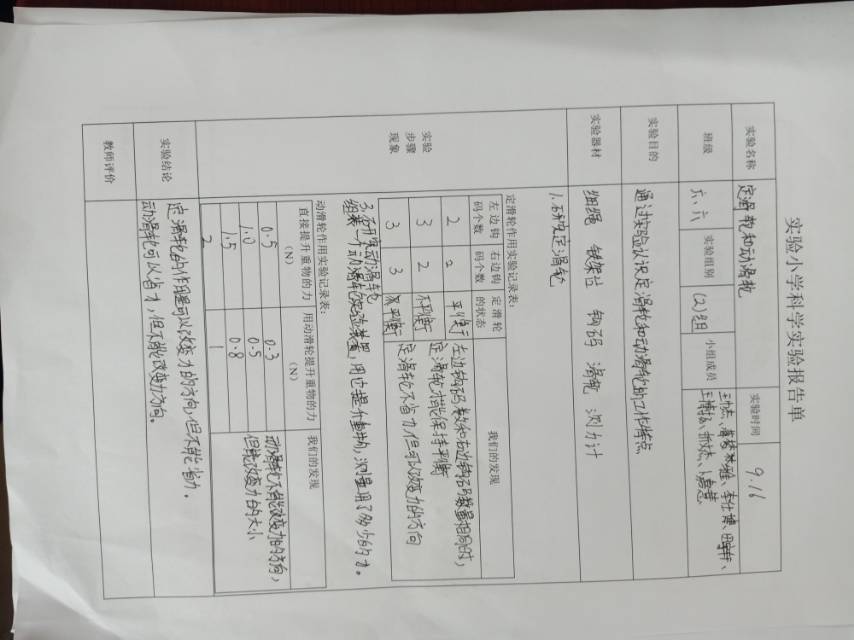 实验小学科学实验报告单
实验名称 定滑轮和动滑轮 实验时间 9.16
班级 六、六 实验组别 (2)组 小组成员
实验目的 通过实验认识定滑轮和动滑轮的工作特点
实验器材 细绳 铁架台 钩码 滑轮 测力计
实验步骤现象
1.研究定滑轮
定滑轮作用实验记录表:
左边钩码个数 右边钩码个数 定滑轮的状态 我们的发现
2 2 平衡 左边钩码数和右边钩码数量相同时,
3 2 不平衡 定滑轮才能保持平衡
3 3 平衡 定滑轮不省力,但可以改变力的方向
研究动滑轮
组装一个动滑轮实验装置,用它提升重物,测量用了多少的力。
动滑轮作用实验记录表:
直接提升重物的力(N) 用动滑轮提升重物的力(N) 我们的发现
0.5 0.3 动滑轮不能改变力的方向,
1.0 0.5 但能改变力的大小
1.5 0.8
2 1
实验结论 定滑轮的作用是可以改变力的方向,但不能省力。
动滑轮可以省力,但不能改变力方向。
教师评价